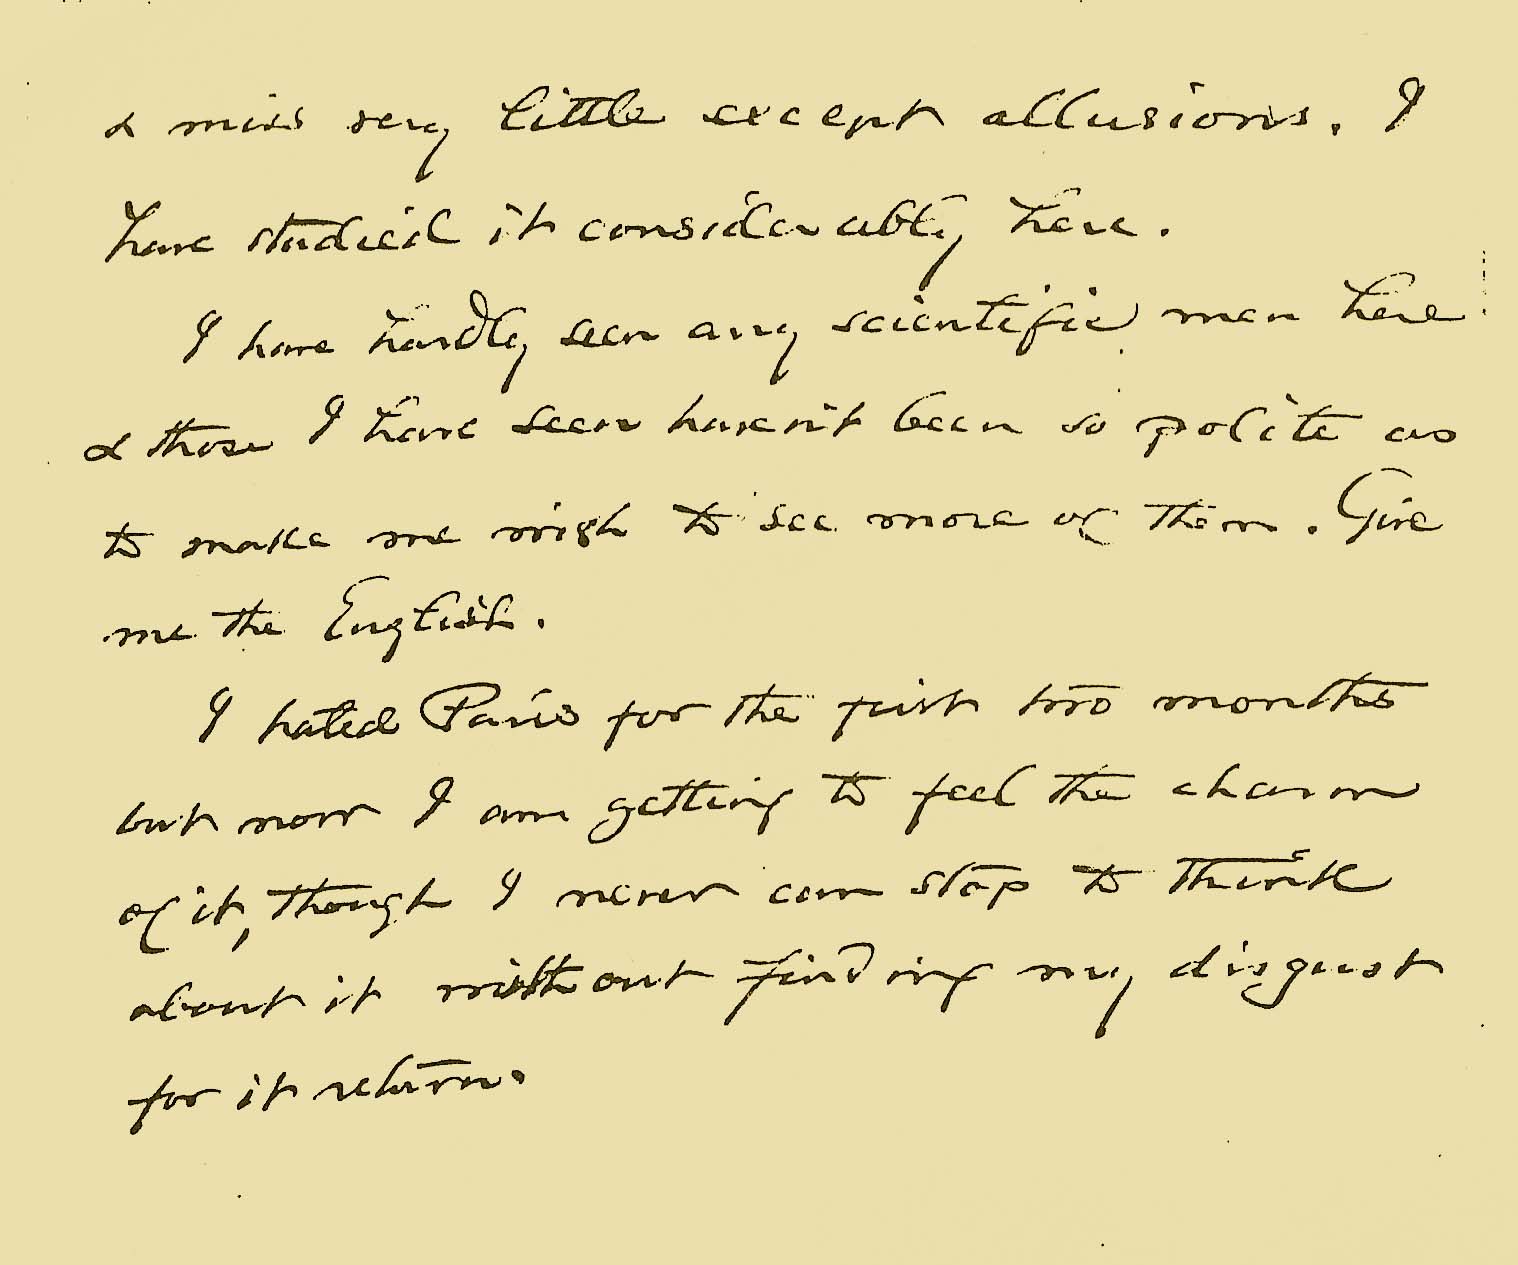 & miss very little except allusions. I
have studied it considerably here.
I have hardly seen any scientific men here
& those I have seen haven't been so polite as
to make me wish to see more of them. Give
me the English.
I hated Paris for the first two months
but now I am getting to feel the charm
of it, though I never can stop to think
about it without finding my disgust
for it return.